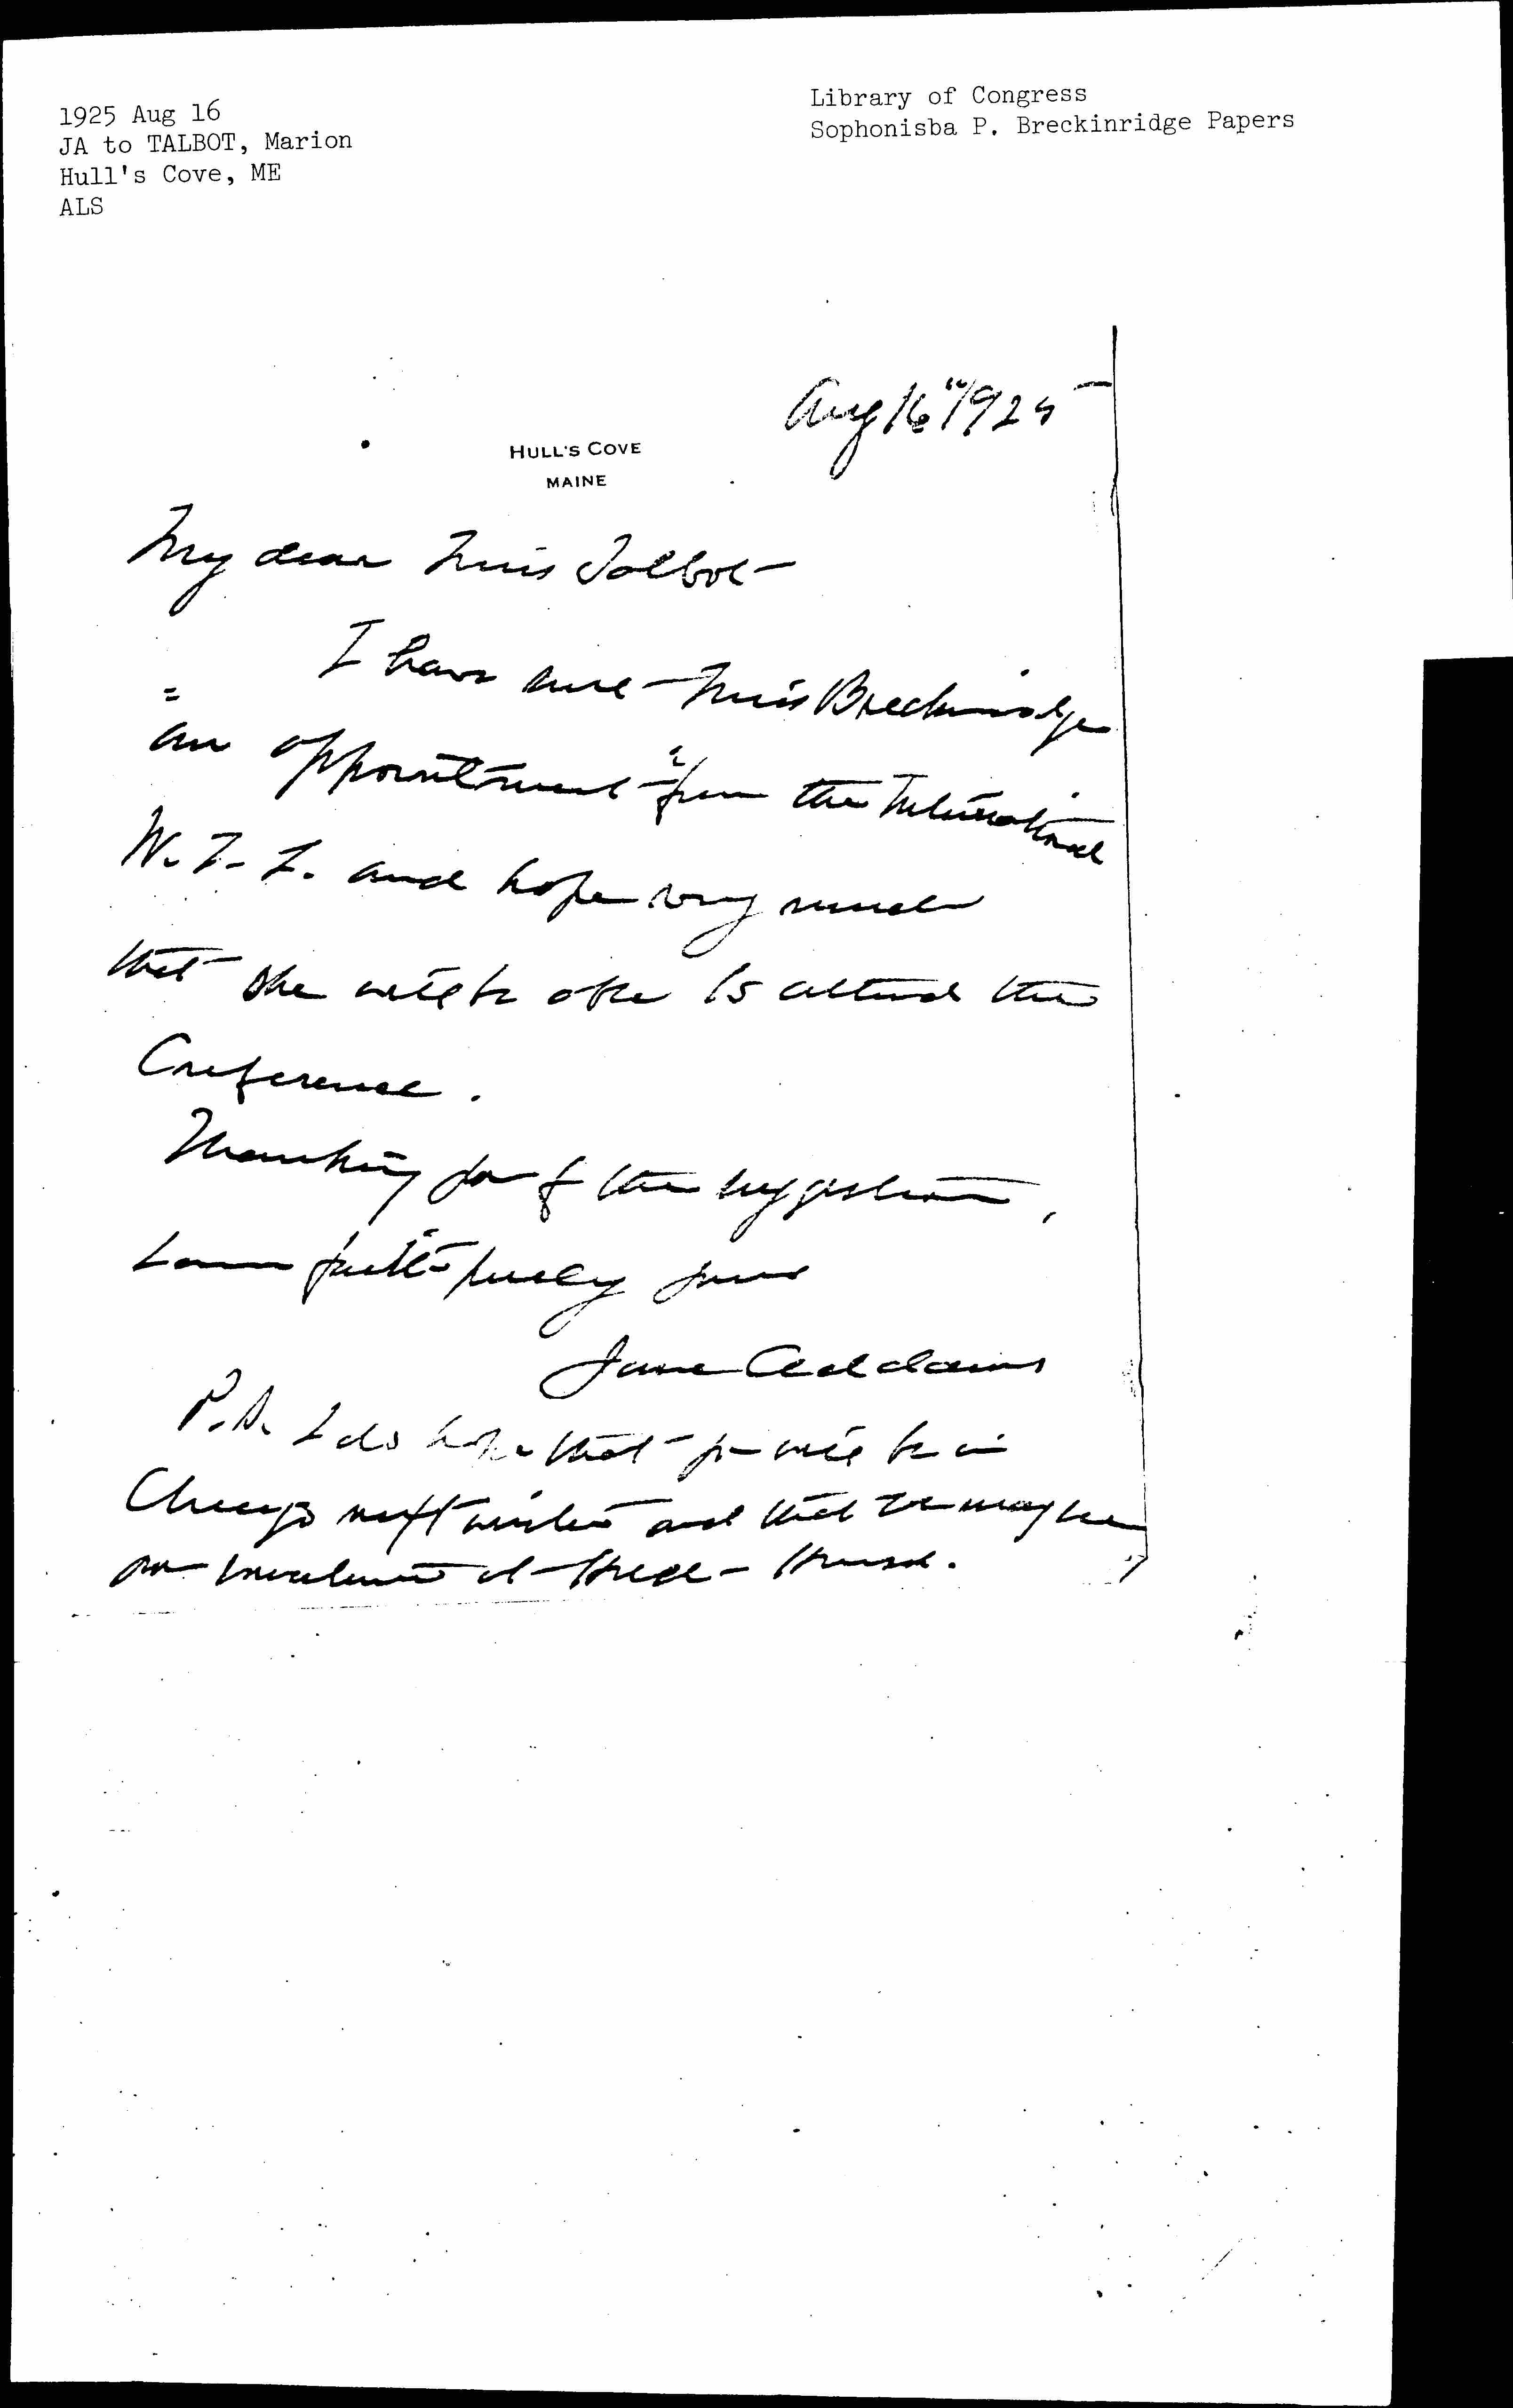 1925 Aug 16
JA to TALBOT, Marion
Hull's Cove, ME
ALS
Library of Congress
Sophonisba P. Breckinridge Papers
Aug 16" 1925
HULL'S COVE
MAINE
My dear Miss Talbot—
I have sent Miss Breckinridge
"an appointment" from the International
W. I. L. and hope very much
that she will be able to attend the
Conference.
Thanking you for the suggestion,
I am faithfully yours
Jane Addams
P.S. I do hope that you will be in
Chicago next winter and that we may see
you at Hull-House.